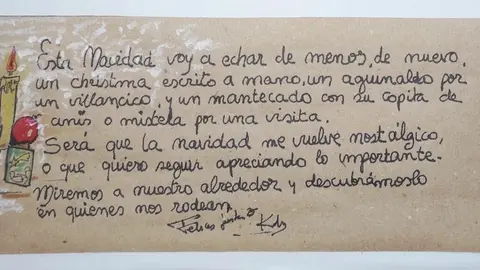 Esta Navidad voy a echar de menos, de nuevo,
un christma escrito a mano, un aguinaldo por
un villancico, y un mantecado con su copita de
anís o mistela por una visita.
Será que la navidad me vuelve nostálgico,
o que quiero seguir apreciando lo importante.
Miremos a nuestro alrededor y descubrámoslo
en quienes nos rodean